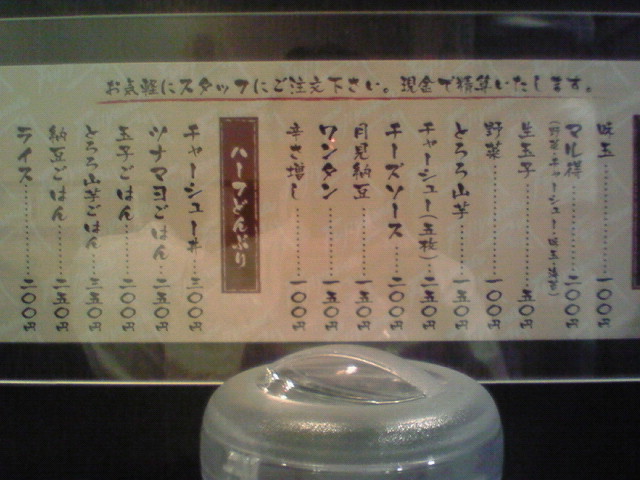 お気軽にスタッフにご注文下さい。現金で精算いたします。
味玉…………一〇〇円
マル得…………二〇〇円
(野菜・チャーシュー・味玉・海苔)
生玉子…………五〇円
野菜…………一〇〇円
とろろ山芋…………一五〇円
チャーシュー(五枚)…………二五〇円
チーズソース…………二〇〇円
月見納豆…………一五〇円
ワンタン…………一五〇円
辛さ増し…………一〇〇円
ハーフどんぶり
チャーシュー丼…………三〇〇円
ツナマヨごはん…………二五〇円
玉子ごはん…………二〇〇円
とろろ山芋ごはん…………三五〇円
納豆ごはん…………二五〇円
ライス…………一〇〇円